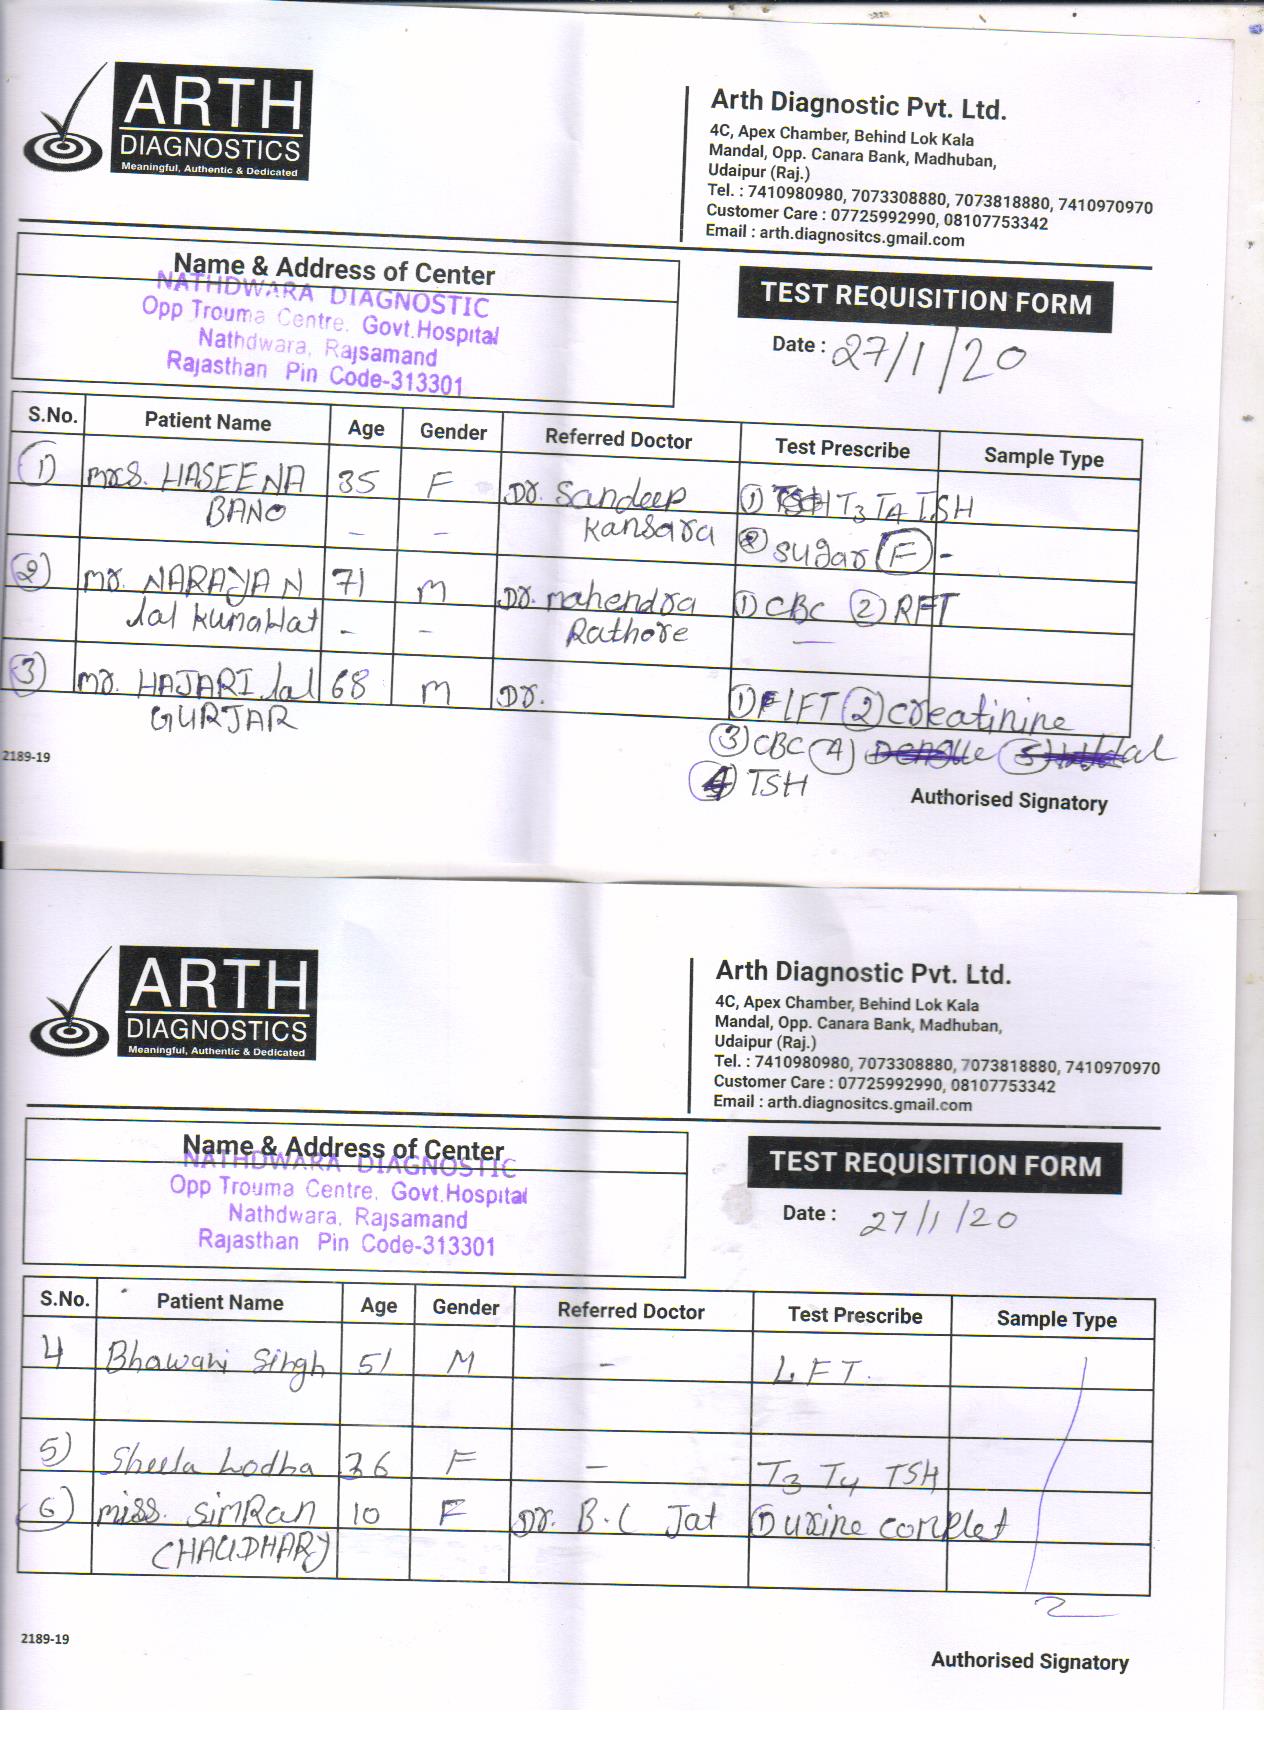 ARTH
DIAGNOSTICS
Meaningful, Authentic & Dedicated
Arth Diagnostic Pvt. Ltd.
4C, Apex Chamber, Behind Lok Kala
Mandal, Opp. Canara Bank, Madhuban,
Udaipur (Raj.)
Tel. : 7410980980, 7073308880, 7073818880, 7410970970
Customer Care : 07725992990, 08107753342
Email : arth.diagnositcs.gmail.com
Name & Address of Center
NATHDWARA DIAGNOSTIC
Opp Trouma Centre, Govt.Hospital
Nathdwara, Rajsamand
Rajasthan Pin Code-313301
TEST REQUISITION FORM
Date : 27/1/20
S.No. Patient Name Age Gender Referred Doctor Test Prescribe Sample Type
1) Mrs. HASEENA 35 F Dr. Sandeep 1) T3 T4 TSH
BANO - - Kansara 2) Sugar (F) -
2) Mr. NARAYAN 71 M Dr. Mahendra 1) CBC 2) RFT
lal Kumawat - - Rathore -
3) Mr. HAJARI lal 68 M Dr. 1) LFT 2) creatinine
GURJAR
3) CBC 4)
4) TSH
2189-19
Authorised Signatory
ARTH
DIAGNOSTICS
Meaningful, Authentic & Dedicated
Arth Diagnostic Pvt. Ltd.
4C, Apex Chamber, Behind Lok Kala
Mandal, Opp. Canara Bank, Madhuban,
Udaipur (Raj.)
Tel. : 7410980980, 7073308880, 7073818880, 7410970970
Customer Care : 07725992990, 08107753342
Email : arth.diagnositcs.gmail.com
Name & Address of Center
NATHDWARA DIAGNOSTIC
Opp Trouma Centre, Govt.Hospital
Nathdwara, Rajsamand
Rajasthan Pin Code-313301
TEST REQUISITION FORM
Date : 27/1/20
S.No. Patient Name Age Gender Referred Doctor Test Prescribe Sample Type
4 Bhawani Singh 51 M - LFT.
5) Sheela Lodha 36 F - T3 T4 TSH
6) Miss. SIMRan 10 F Dr. B.C Jat 1) urine complet
CHAUDHARY
2189-19
Authorised Signatory